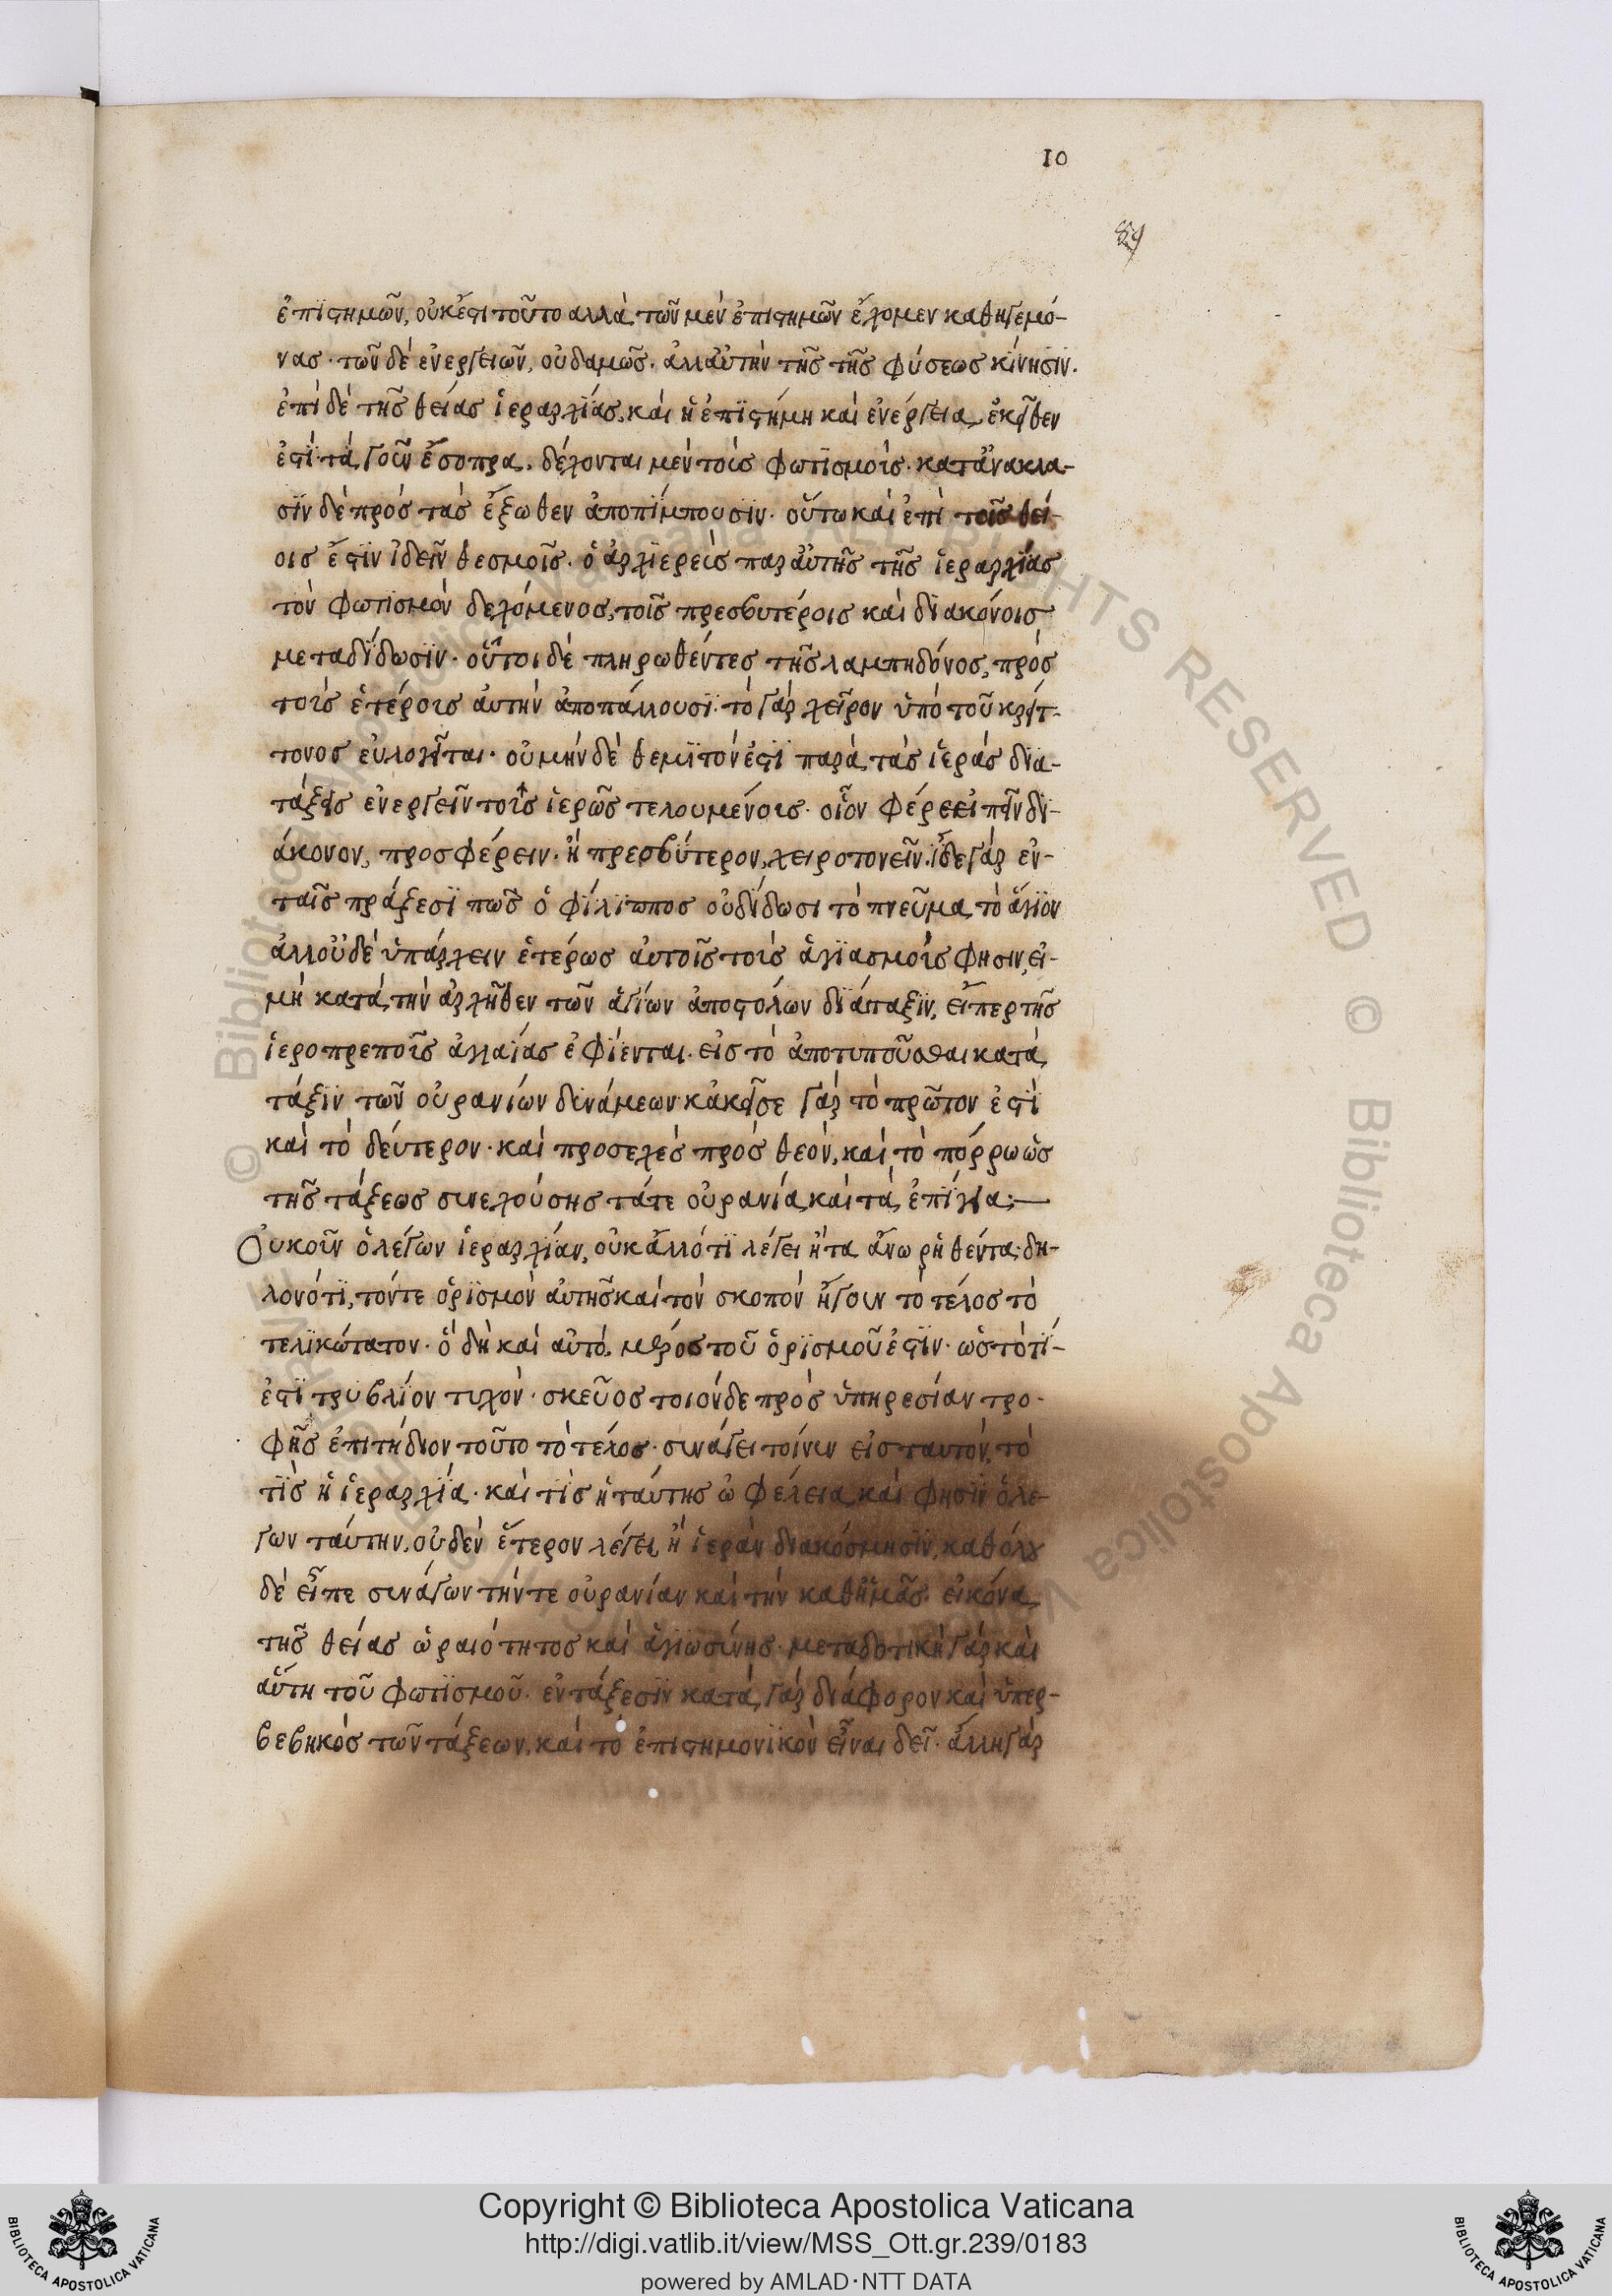 10
89
ἐπϊστημῶν, οὐκέστι τοῦτο αλλὰ τῶν μὲν ἐπιστημῶν ἔχομεν καθηγεμό-
νας · τῶν δὲ ἐνεργειῶν, οὐδαμῶς · ἀλλαὐτὴν τῆς τῆς φύσεως κίνησϊν.
ἐπὶ δὲ τῆς θείας ἱεραρχΐας, καὶ ἡ ἐπϊστήμη καὶ ἐνέργεια, ἐκεῖθεν
ἐστΐ· τὰ γοῦν ἔσοπρα. δέχονται μὲν τοὺς φωτϊσμούς · κατἀνακλα-
σϊν δὲ πρὸς τὰς ἔξωθεν ἀποπέμπουσϊν · οὕτω καὶ ἐπὶ τοῖς θεί-
οις ἔστϊν ἰδεῖν θεσμοῖς · ὁ ἀρχϊερεὺς παραὐτῆς τῆς ἱεραρχΐας
τὸν φωτισμὸν δεχόμενος, τοῖς πρεσβυτέροις καὶ δϊακόνοις
μεταδΐδωσϊν · οὗτοι δὲ πληρωθέντες τῆς λαμπηδόνος, πρὸς
τοὺς ἑτέρους ἀυτὴν ἀποπάλλουσϊ · τὸ γὰρ χεῖρον ὑπὸ τοῦ κρείτ-
τονος εὐλογεῖται · οὐ μὴν δὲ θεμϊτόν ἐστϊ παρὰ τὰς ἱερὰς δϊα-
τάξεις ἐνεργεῖν τοῖς ἱερῶς τελουμένοις · οἷον φέρε εἰπεῖν δϊ-
άκονον, προσφέρειν · ἢ πρεσβύτερον, χειροτονεῖν · ἴδε γὰρ ἐν-
ταῖς πράξεσϊ πῶς ὁ φίλϊππος οὐ δΐδωσι τὸ πνεῦμα τὸ ἅγϊον
ἀλλοὐδὲ ὑπάρχειν ἑτέρως ἀυτοῖς τοὺς ἁγϊασμούς φησιν, εἰ-
μὴ κατὰ τὴν ἀρχῆθεν τῶν ἁγίων ἀποστόλων δϊάταξϊν, εἴπερ τῆς
ἱεροπρεποῦς ἀγλαΐας ἐφΐενται · εἰς τὸ ἀποτυποῦσθαι κατὰ
τάξϊν τῶν οὐρανίων δυνάμεων· κἀκεῖσε γὰρ τὸ πρῶτον ἐστϊ
καὶ τὸ δεύτερον · καὶ προσεχὲς πρὸς θεὸν, καὶ τὸ πόρρω ὡς
τῆς τάξεως συνεχούσης τάτε οὐρανία καὶ τὰ ἐπΐγεια:—
Οὐκοῦν ὁ λέγων ἱεραρχίαν, οὐκ ἄλλό τϊ λέγει ἢ τα ἄνω ρηθέντα· δη-
λονότϊ, τόντε ὁρϊσμὸν ἀυτῆς καὶ τὸν σκοπὸν ἤγουν τὸ τέλος τὸ
τελϊκώτατον · ὁ δὴ καὶ αὐτὸ, μέρος τοῦ ὁρϊσμοῦ ἐστϊν · ὡς τὸ τΐ-
ἐστϊ τρυβλΐον τυχὸν · σκεῦος τοιόνδε πρὸς ὑπηρεσίαν τρο-
φῆς ἐπιτήδειον τοῦτο τὸ τέλος · συνάγει τοίνυν εἰς ταυτὸν, τὸ
τΐς ἡ ἱεραρχΐα · καὶ τΐς ἡ ταύτης ὠφέλεια, καὶ φησϊν ὁ λέ-
γων ταύτην, οὐδὲν ἕτερον λέγει, ἢ ἱερὰν δϊακόσμησϊν, καθόλου
δὲ εἶπε συνάγων τήντε οὐρανίαν καὶ τὴν καθἡμᾶς · εἰκόνα
τῆς θείας ὡραιότητος καὶ ἁγϊωσύνης · μεταδοτικὴ γὰρ καὶ
αὕτη τοῦ φωτϊσμοῦ · ἐν τάξεσϊν κατὰ γὰρ δϊάφορον καὶ ὑπερ-
βεβηκὸς τῶν τάξεων, καὶ τὸ ἐπιστημονϊκὸν εἶναι δεῖ · ἄλλη γὰρ
Copyright © Biblioteca Apostolica Vaticana
http://digi.vatlib.it/view/MSS_Ott.gr.239/0183
powered by AMLAD·NTT DATA